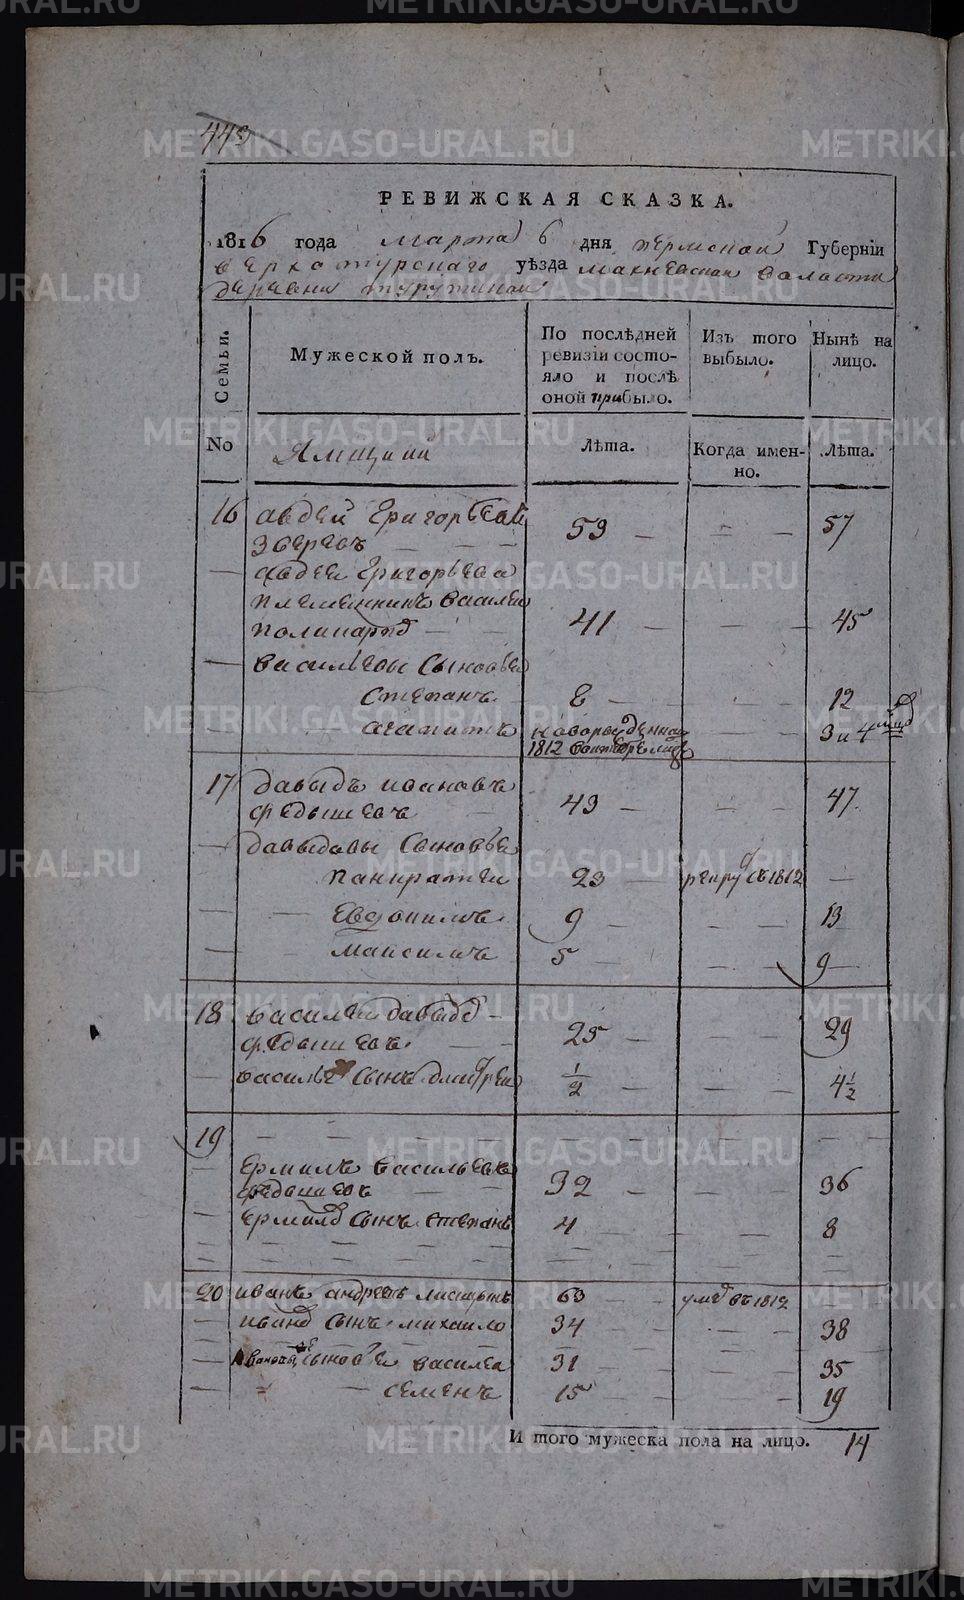 443
РЕВИЖСКАЯ СКАЗКА.
1816 года марта 6 дня пермской Губерніи
верхотурскаго уѣзда махневской валости
деревни турутиной
Семьи. Мужеской полъ. По послѣдней ревизіи состояло и послѣ оной прибыло. Изъ того выбыло. Нынѣ на лицо.
No Ямщики Лѣта. Когда именно. Лѣта.
16 авдей Григорьевъ
Зверевъ 53 57
авдея Григорьева
племенникъ василей
поликарпо 41 45
васильевы сыновья
степанъ 8 12
агапитъ новорожденной 1812 3 и 4
17 давыдъ ивановъ
федышевъ 43 47
давыдовы сыновья
панкратей 23 рекру въ 1812
Евдокимъ 9 13
максимъ 5 9
18 василей давыдо
федышевъ 25 29
василья сынъ дмитрей 1/2 4 1/2
19
Ермилъ васильевъ
федышевъ 32 36
ермила сынъ степанъ 4 8
20 иванъ андреевъ 63 умре въ 1812
ивана сынъ михаило 34 38
сыновья василей 31 35
семенъ 15 19
И того мужеска пола на лицо. 14
METRIKI.GASO-URAL.RU